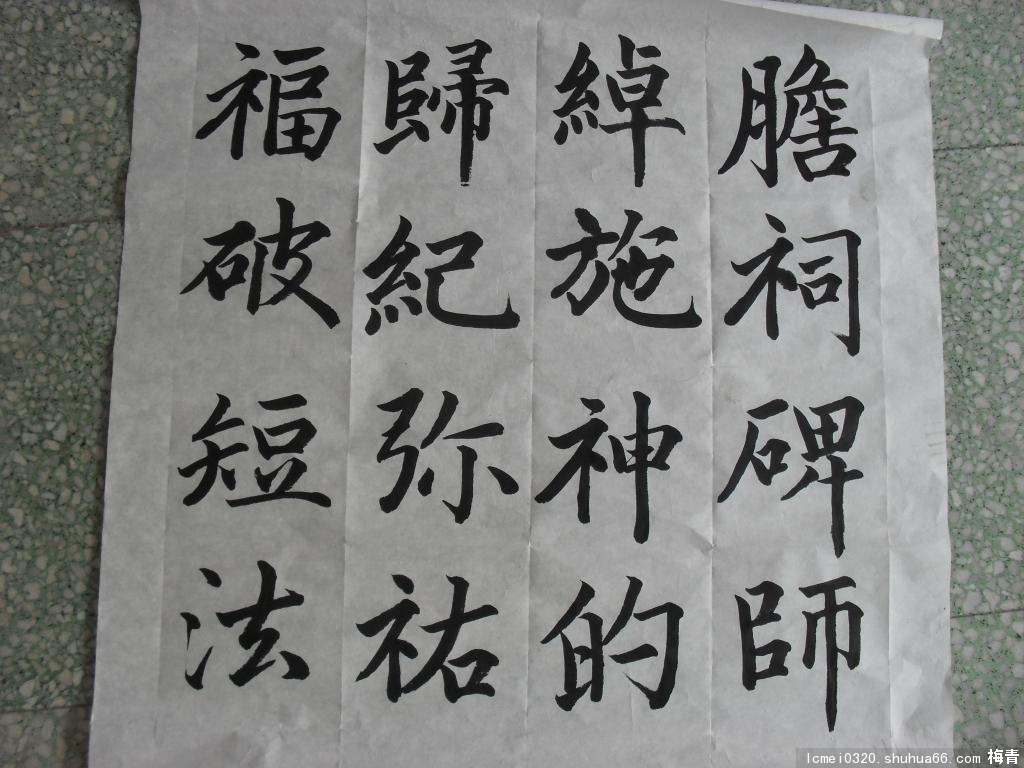 膽祠碑師
綽施神的
歸紀弥祐
福破短法
lcmei0320.shuhua66.com 梅青